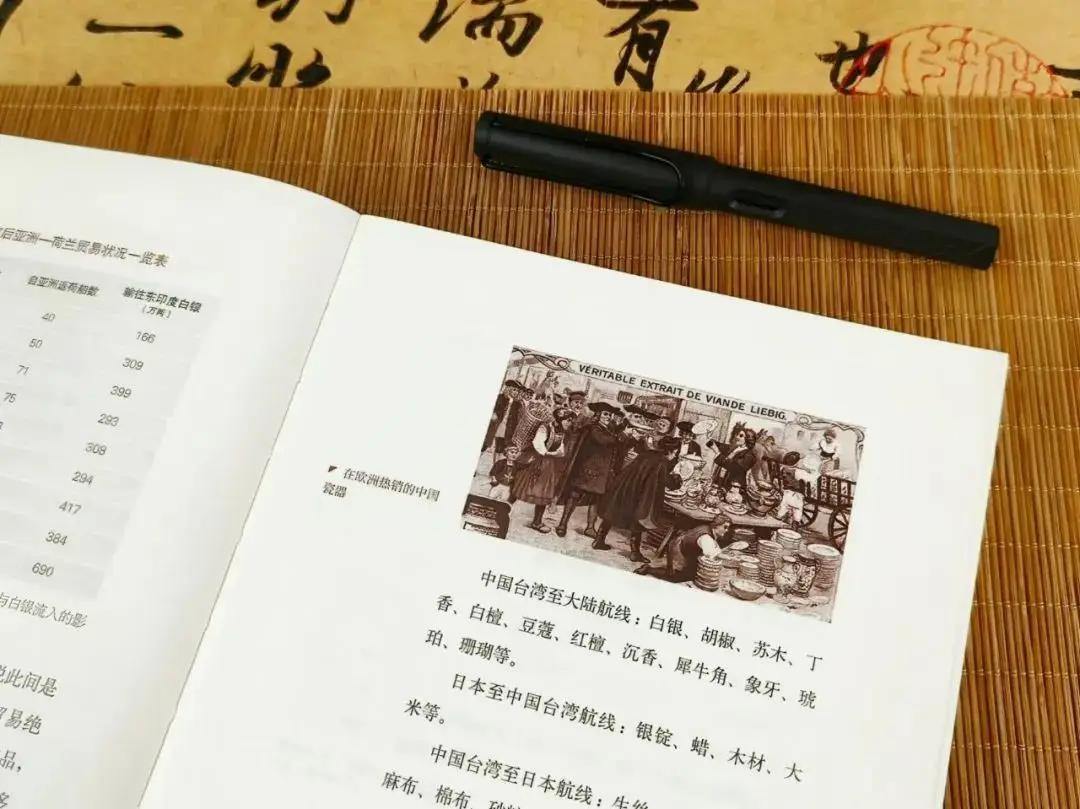 有
世
后亚洲—荷兰贸易状况一览表
自亚洲返荷船数 输往东印度白银
(万两)
40 166
50 309
71 399
75 293
308
294
417
384
690
与白银流入的影
说此间是
贸易绝
品，
VÉRITABLE EXTRAIT DE VIANDE LIEBIG.
在欧洲热销的中国
瓷器
中国台湾至大陆航线：白银、胡椒、苏木、丁
香、白檀、豆蔻、红檀、沉香、犀牛角、象牙、琥
珀、珊瑚等。
日本至中国台湾航线：银锭、蜡、木材、大
米等。
中国台湾至日本航线：生丝
麻布、棉布、砂